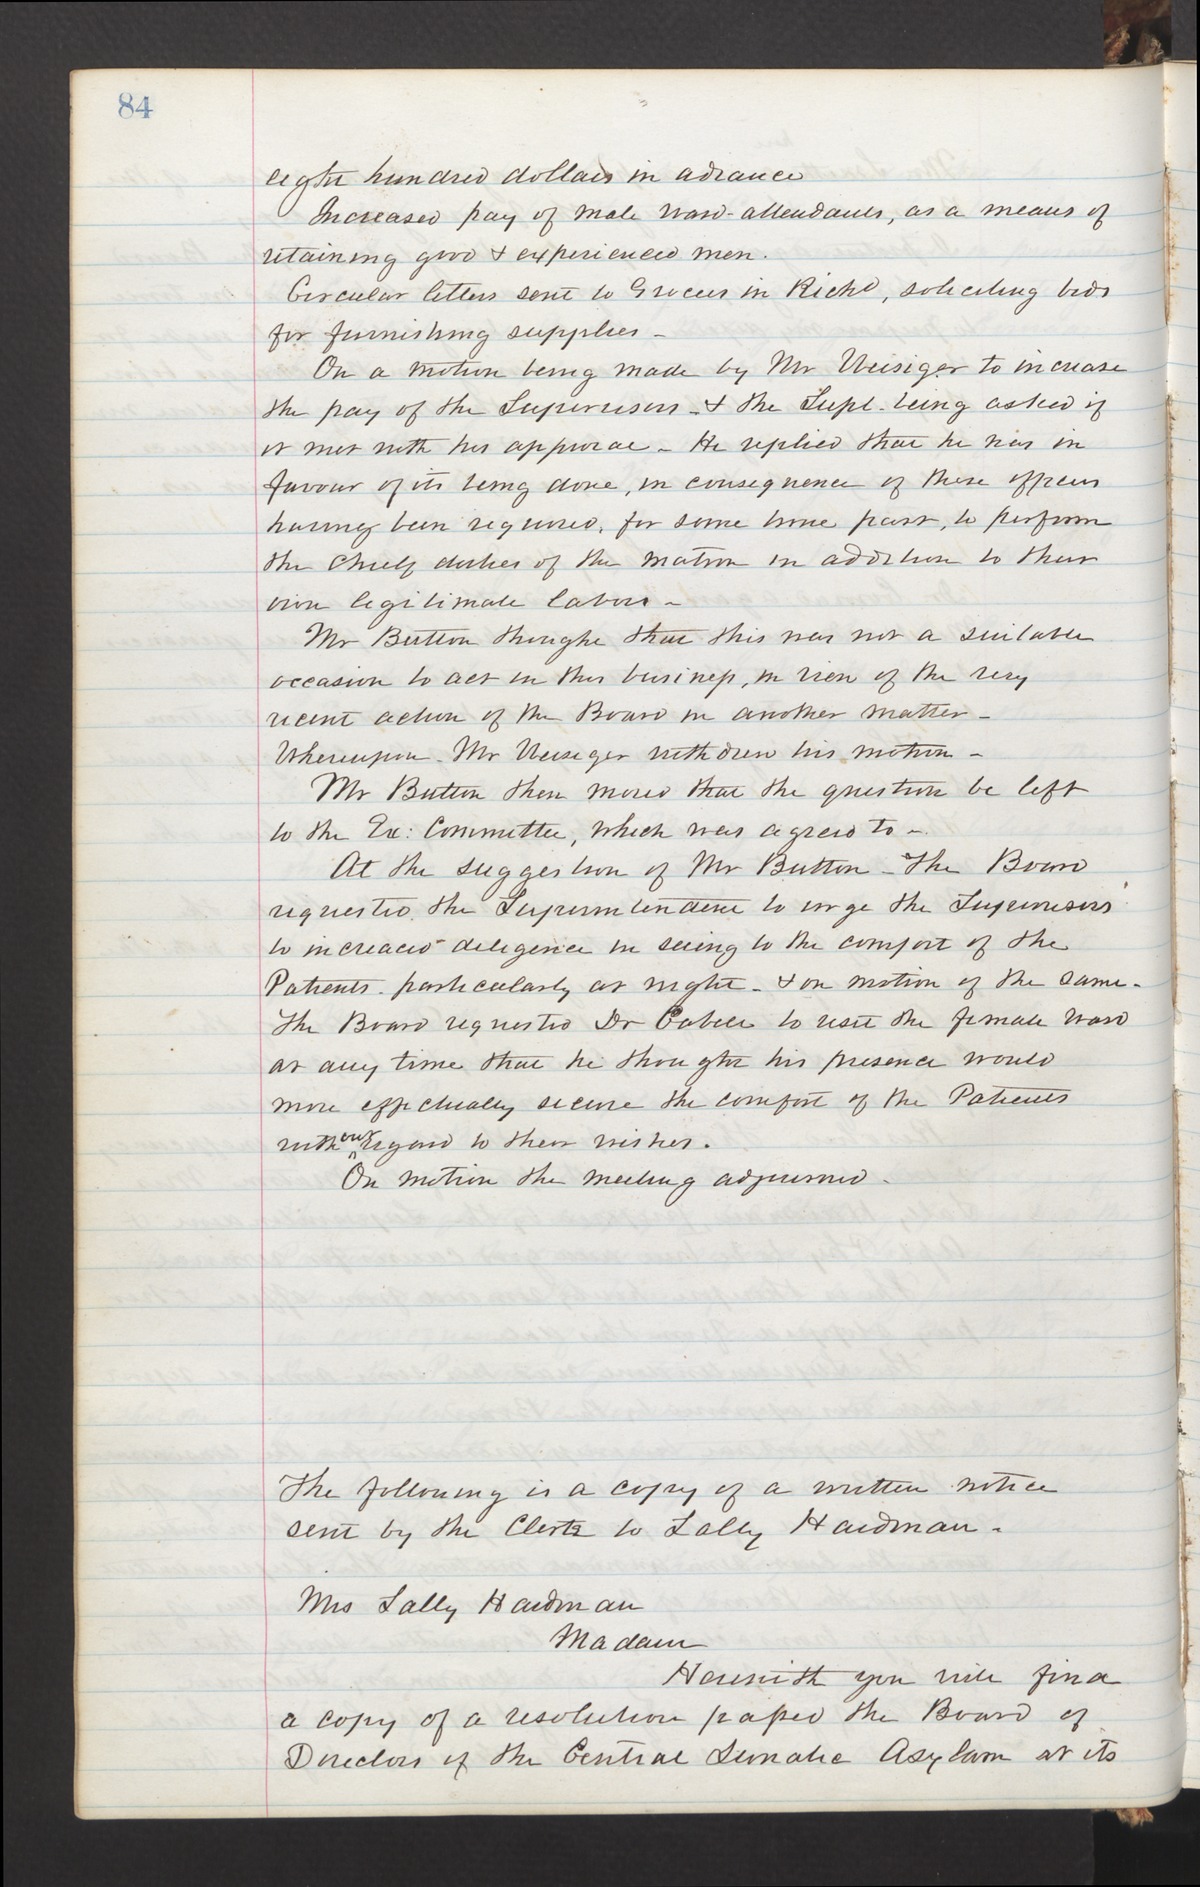 84
eight hundred dollars in advance
Increased pay of male ward-attendants, as a means of
retaining good & experienced men.
Circular letters sent to Grocers in Richd, soliciting bids
for furnishing supplies -
On a motion being made by Mr Weisiger to increase
the pay of the Supervisors - & the Supt. being asked if
it met with his approval - He replied that he was in
favour of its being done, in consequence of these officers
having been required, for some time past, to perform
the chief duties of the Matron in addition to their
own legitimate labors -
Mr Button thought that this was not a suitable
occasion to act in this business, in view of the very
recent action of the Board in another matter -
Whereupon - Mr Weisiger withdrew his motion -
Mr Button then moved that the question be left
to the Ex: Committee, which was agreed to -
At the suggestion of Mr Button - The Board
requested the Superintendent to urge the Supervisors
to increased diligence in seeing to the comfort of the
Patients - particularly at night - & on motion of the same -
The Board requested Dr Cabell to visit the female ward
at any time that he thought his presence would
more effectually secure the comfort of the Patients
without regard to their wishes.
On motion the meeting adjourned -
The following is a copy of a written notice
sent by the Clerk to Sally Hardman -
Mrs Sally Hardman
Madam
Herewith you will find
a copy of a resolution passed the Board of
Directors of the Central Lunatic Asylum at its